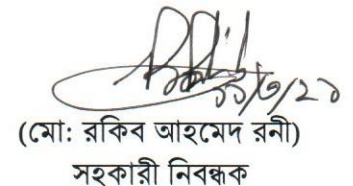 (মো: রকিব আহমেদ রনী)
সহকারী নিবন্ধক